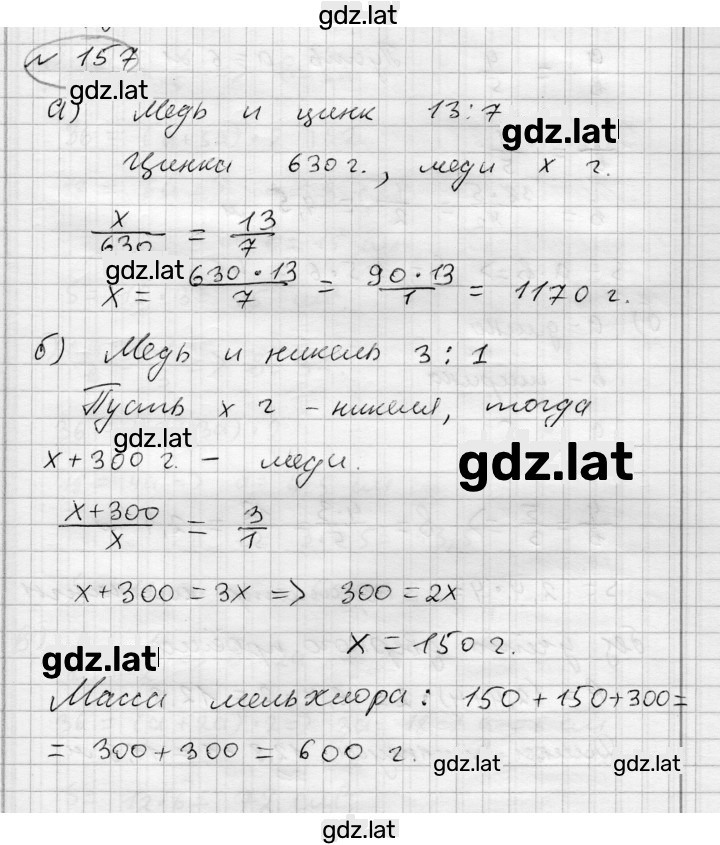 gdz.lat
№ 157
gdz.lat
а) Медь и цинк 13:7
gdz.lat
Цинка 630 г., меди x г.
x/630 = 13/7
gdz.lat
x = 630·13/7 = 90·13/1 = 1170 г.
б) Медь и никель 3:1
Пусть x г - никеля, тогда
gdz.lat
x+300 г. - меди.
gdz.lat
x+300/x = 3/1
x+300 = 3x => 300 = 2x
x = 150 г.
gdz.lat
Масса мельхиора: 150 + 150+300=
= 300+300 = 600 г.
gdz.lat gdz.lat
gdz.lat